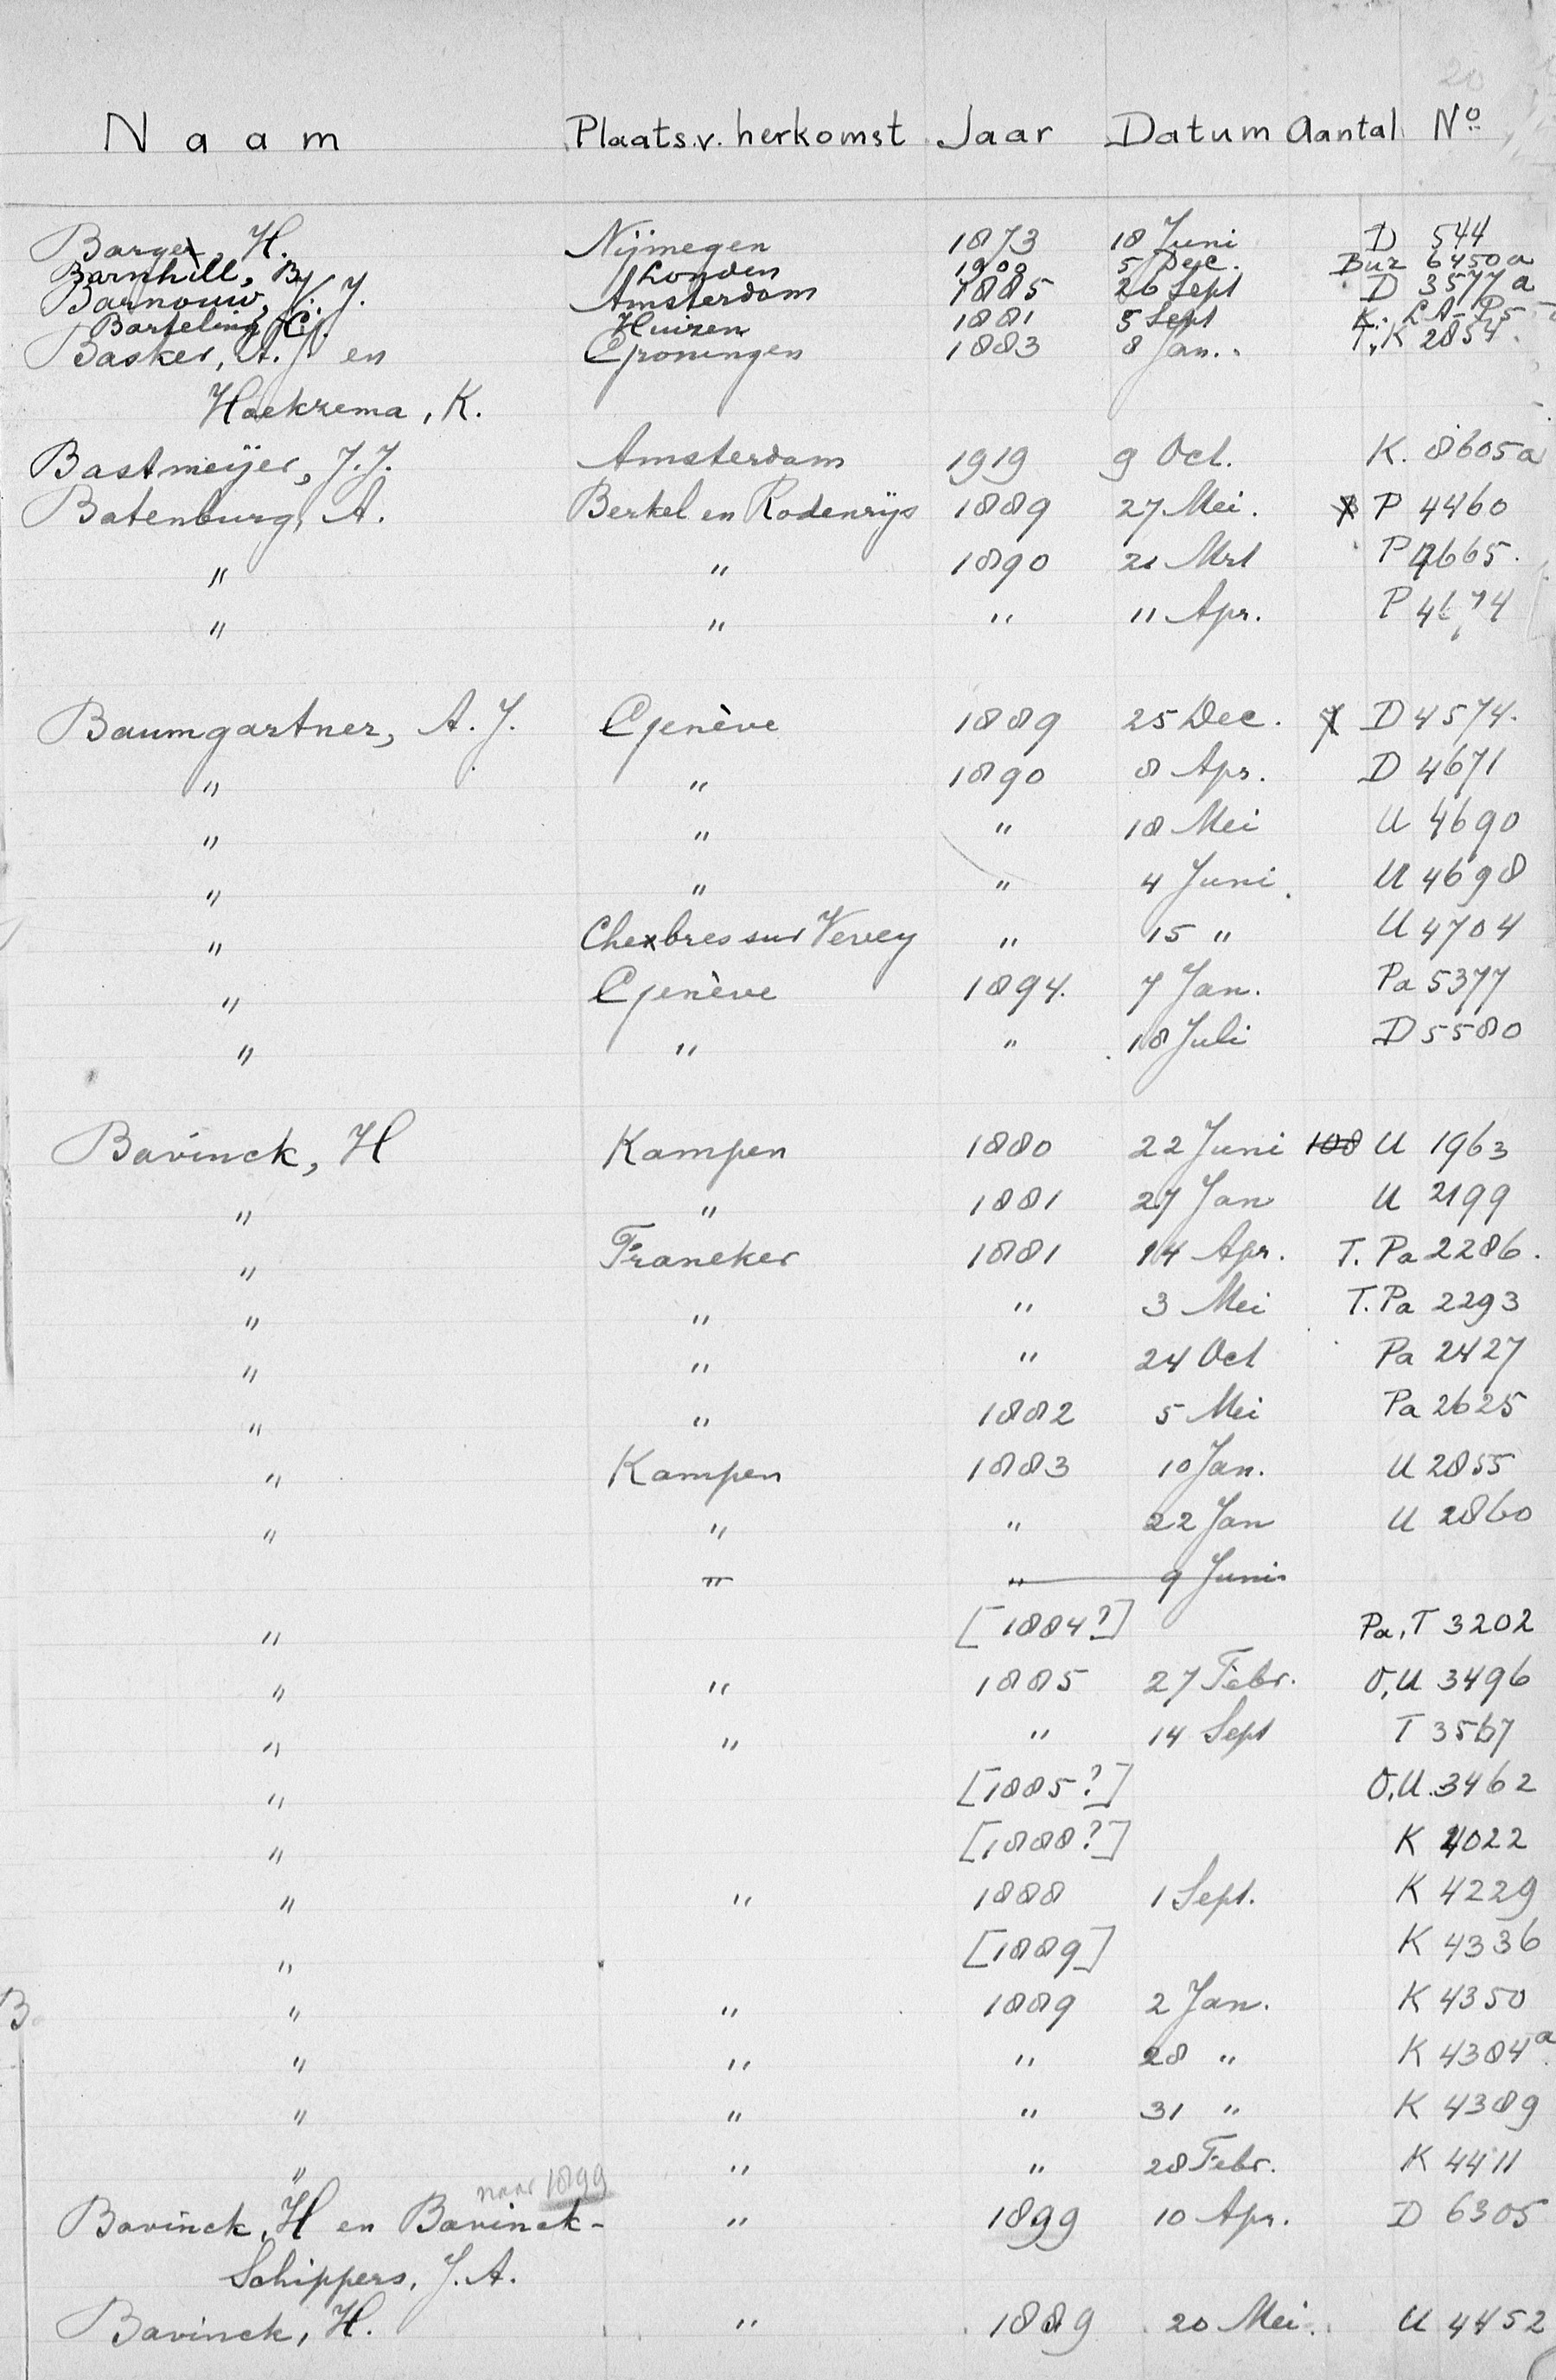 20
Naam Plaats v. herkomst Jaar Datum Aantal No
Barger, H. Nijmegen 1873 18 Juni D 544
Barnhill, B. Londen 1900 5 Dec. Buz 6450a
Barnouw, J. Amsterdam 1885 26 Sept D 3577a
Barteling Huizen 1881 5 Sept
Basker, A.J. en Groningen 1883 8 Jan. T, K 2854.
Hoekzema, K.
Bastmeijer, J.J. Amsterdam 1919 9 Oct. K. 8605a
Batenburg, A. Berkel en Rodenrijs 1889 27 Mei. P 4460
" " 1890 21 Mrt P 4665.
" " " 11 Apr. P 4674
Baumgartner, A.J. Genève 1889 25 Dec. D 4574.
" " 1890 8 Apr. D 4671
" " " 18 Mei U 4690
" " " 4 Juni. U 4698
" Chexbres sur Vevey " 15 " U 4704
" Genève 1894. 7 Jan. Pa 5377
" " " 18 Juli D 5580
Bavinck, H Kampen 1880 22 Juni 108 U 1963
" " 1881 27 Jan U 2199
" Franeker 1881 14 Apr. T. Pa 2286.
" " " 3 Mei T. Pa 2293
" " " 24 Oct Pa 2427
" " 1882 5 Mei Pa 2625
" Kampen 1883 10 Jan. U 2855
" " " 22 Jan U 2860
" " 9 Juni
" [1884?] Pa, T 3202
" " 1885 27 Febr. O, U 3496
" " " 14 Sept T 3567
" [1885?] O, U. 3462
" [1888?] K 4022
" " 1888 1 Sept. K 4229
" [1889] K 4336
B. " " 1889 2 Jan. K 4350
" " " 28 " K 4384a
" " " 31 " K 4389
" " " 28 Febr. K 4411
naar 1899
Bavinck, H en Bavinck- " 1899 10 Apr. D 6305
Schippers, J.A.
Bavinck, H. " 1889 20 Mei. U 4452